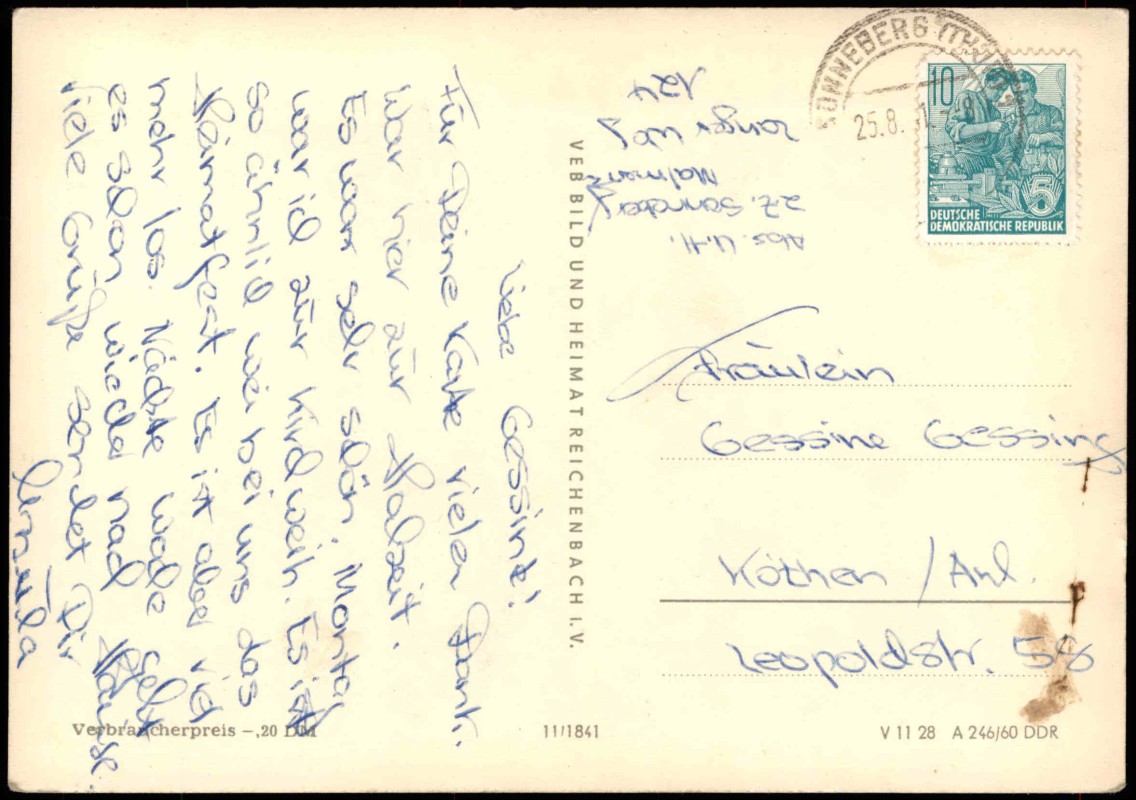 Liebe Gessine!
Für Deine Karte vielen Dank.
War hier zur Hochzeit.
Es war sehr schön. Montag
war ich zur Kirchweih. Es ist
so ähnlich wie bei uns das
Heimatfest. Es ist aber viel
mehr los. Nächste Woche geht
es schon wieder nach Hause.
Viele Grüße sendet Dir
Ursula
VEB BILD UND HEIMAT REICHENBACH I. V.
Abs. U. H.
z. Z. Sonneberg
124
SONNEBERG (THÜR)
25.8.
10
5
DEUTSCHE
DEMOKRATISCHE REPUBLIK
Fräulein
Gessine Gessing
Köthen / Anh.
Leopoldstr. 58
Verbraucherpreis –,20 DM
11/1841
V 11 28 A 246/60 DDR